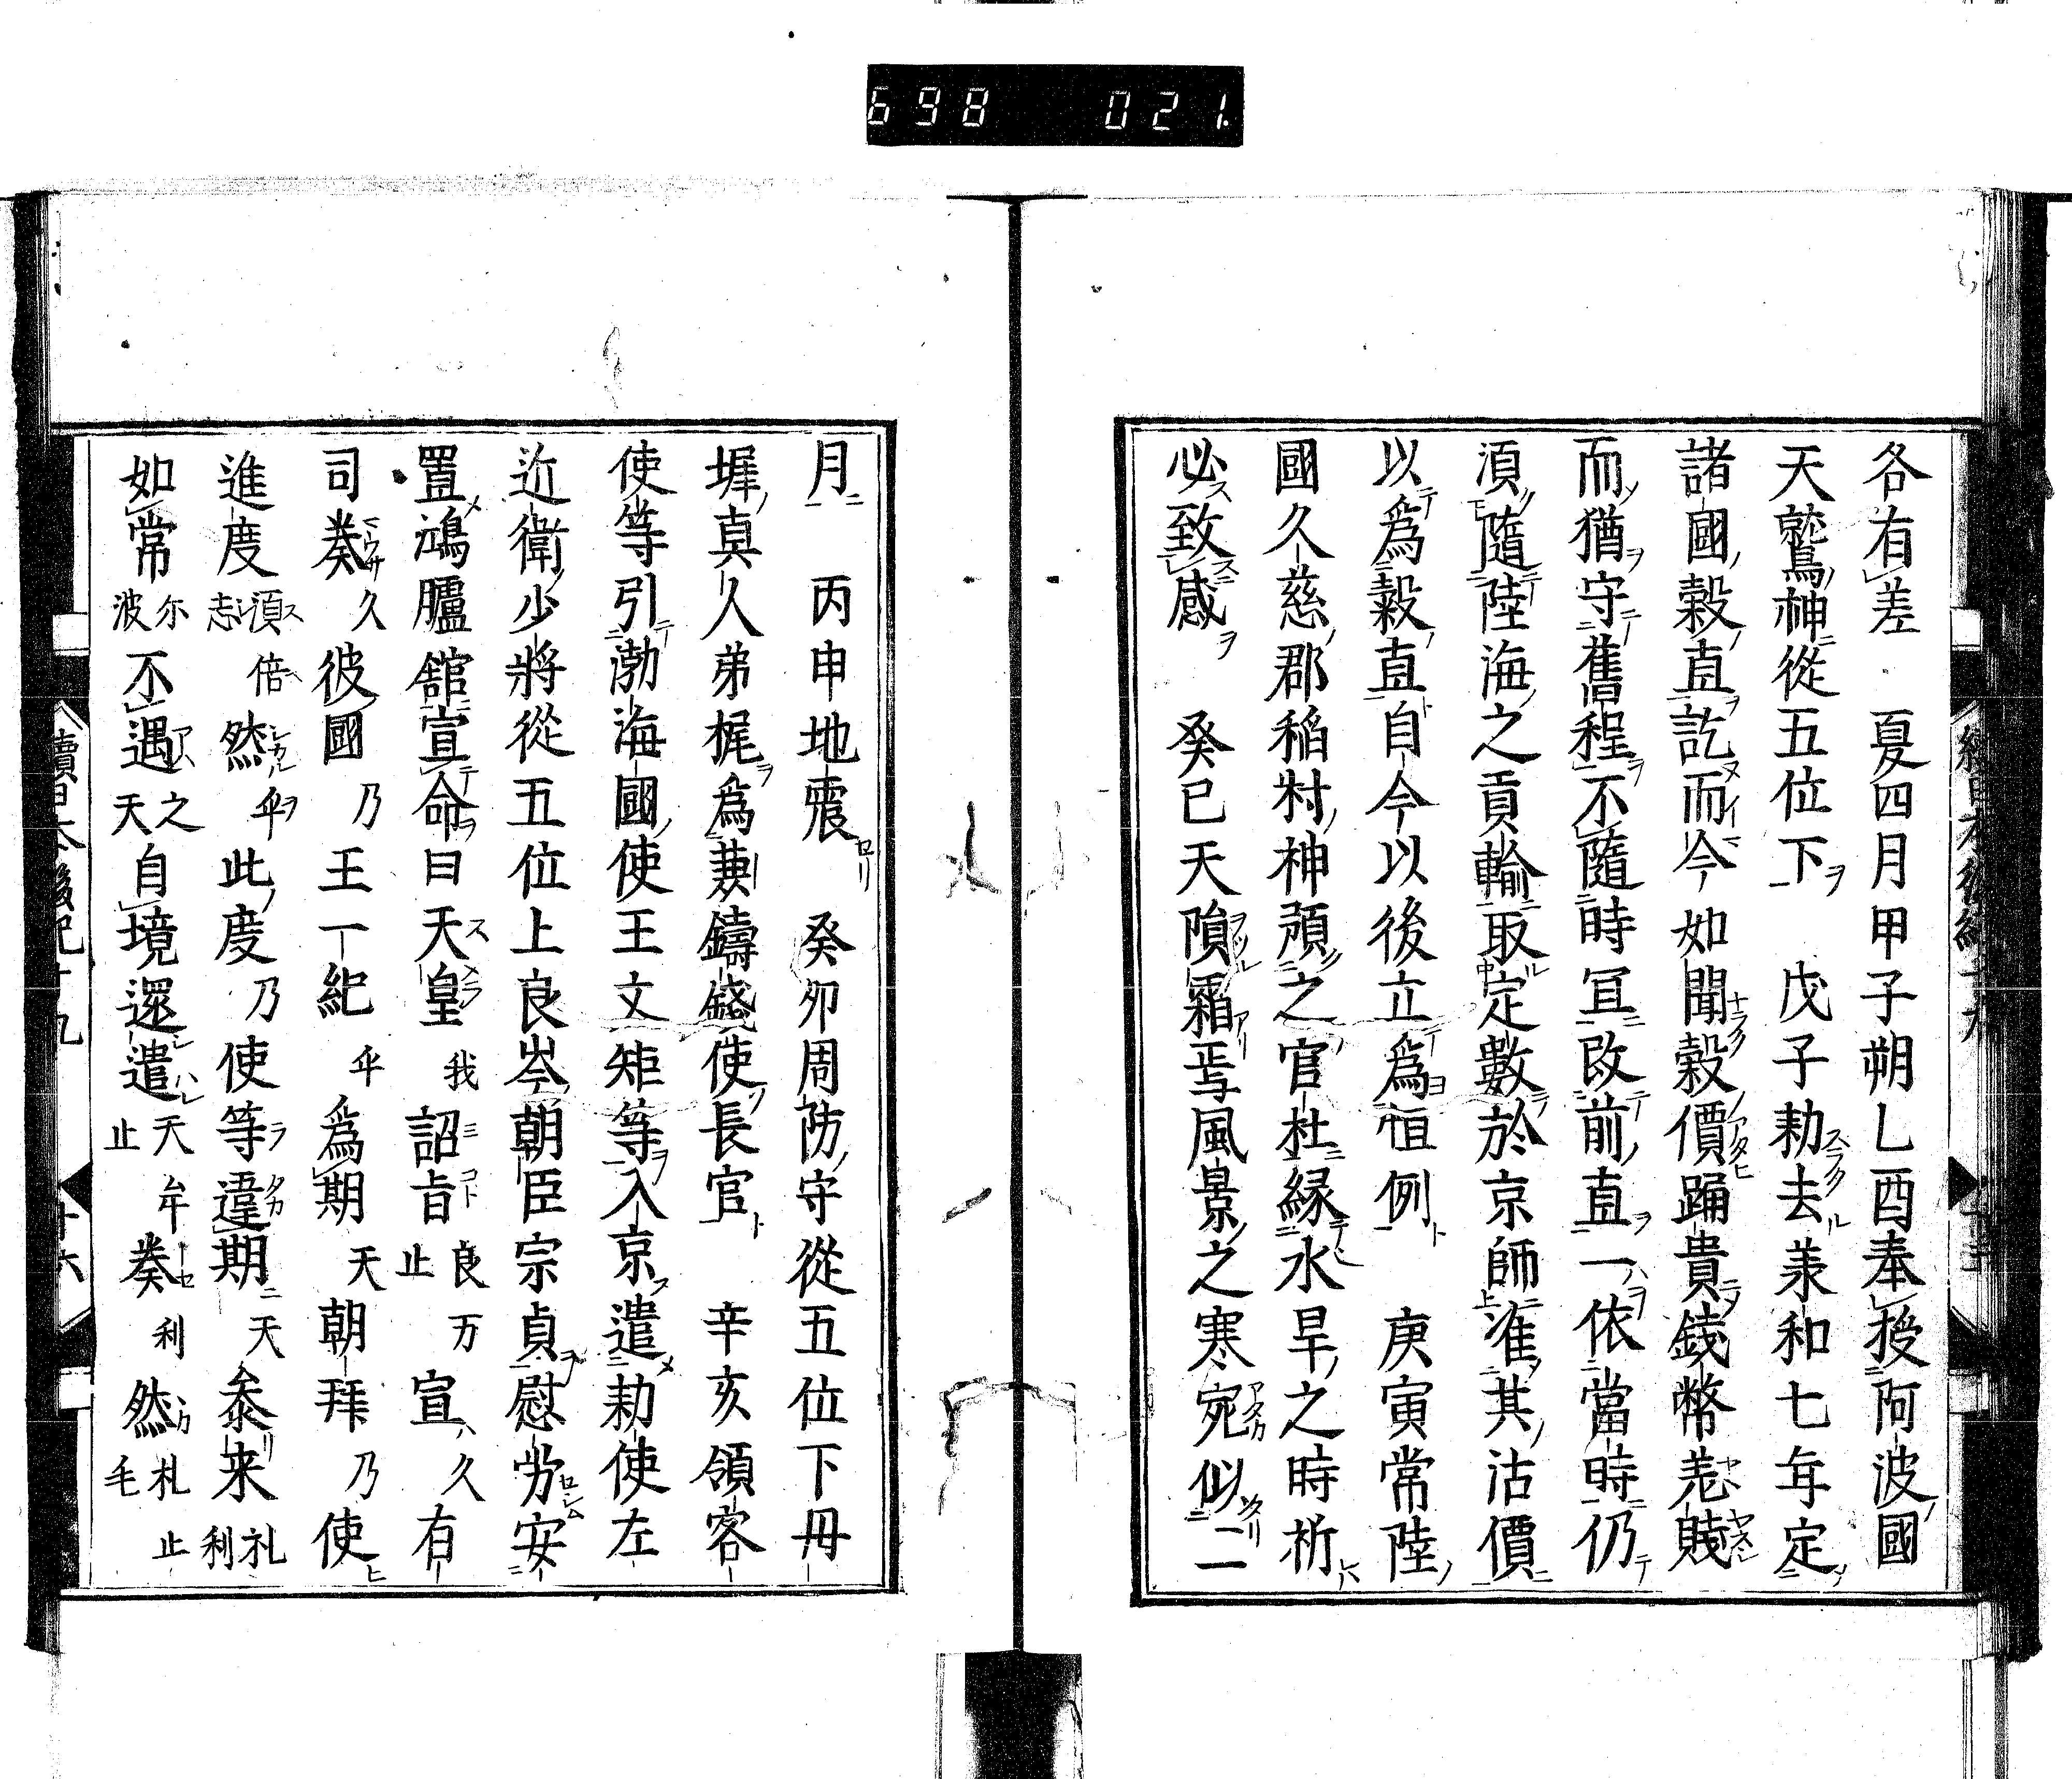 698 021
各有差 夏四月甲子朔乙酉奉授阿波國
天鷲神從五位下 戊子勅去羕和七年定
諸國穀直訖而今如聞穀價踊貴錢幣惎賤
而猶守舊程不隨時冝改前直一依當時仍
湏隨陸海之貢輸取定數於京師准其沽價
以爲穀直自今以後立爲恒例 庚寅常陸
國久慈郡稲村神預之官社縁水旱之時祈
必致感 癸巳天隕霜焉風景之寒宛似二
月 丙申地震 癸卯周防守從五位下毋
墀真人弟梶爲兼鑄錢使長官 辛亥領客
使等引渤海國使王文矩等入京遣勅使左
近衛少將從五位上良岑朝臣宗貞慰労安
置鴻臚舘宣命曰天皇我詔旨良万止宣久有
司奏久彼國乃王一紀乎爲期天朝拜乃使
進度湏倍志然乎此度乃使等違期天叅来礼利
如常尓波不遇之天自境還遣天牟止奏利然礼毛止
續日本後紀十九 十六